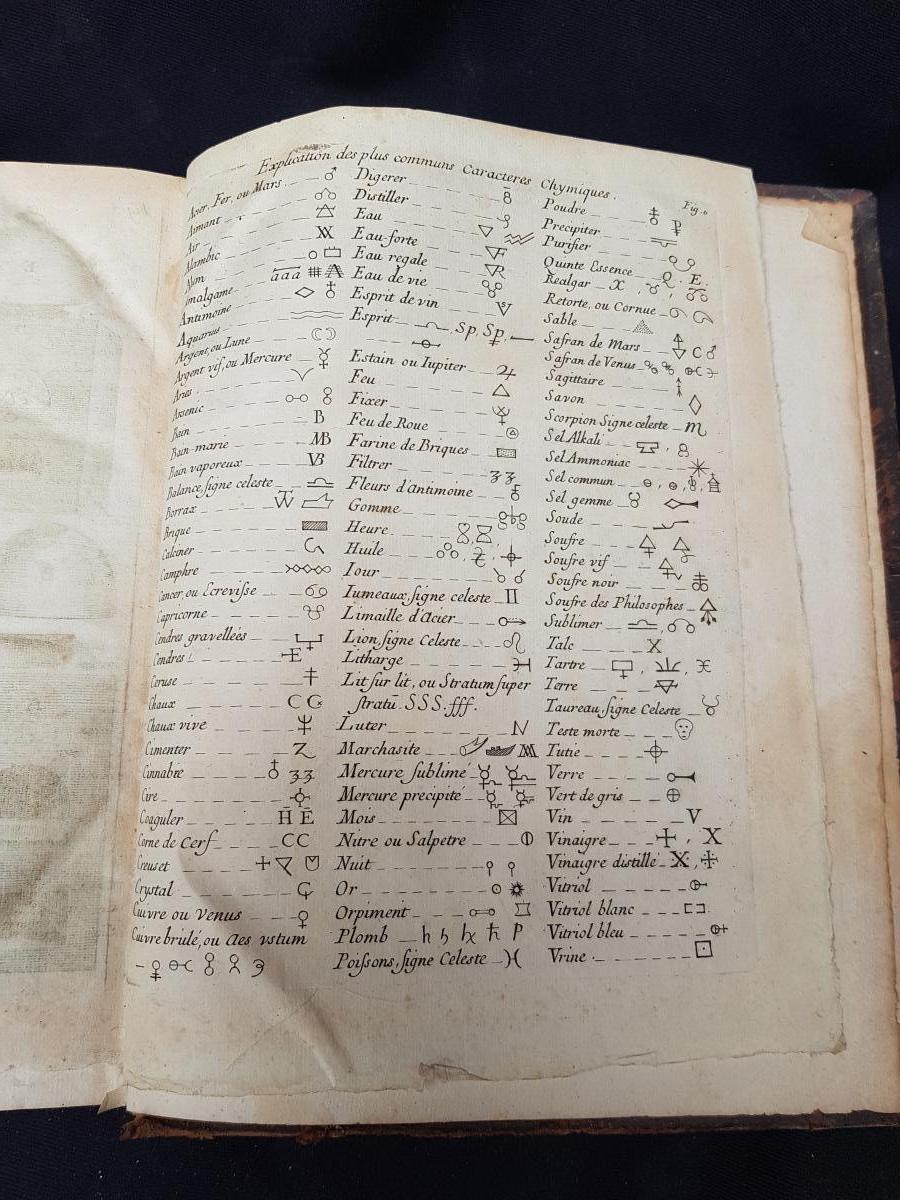 Explication des plus communs Caracteres Chymiques.
Fig. 6
Acier, Fer, ou Mars ♂
Aimant
Air
Alambic XX
Alum
Amalgame aaa
Antimoine ♁
Aquarius
Argent, ou Lune ☾
Argent vif, ou Mercure ☿
Aries ♈
Arsenic
Bain B
Bain-marie MB
Bain vaporeux VB
Balance, signe celeste ♎
Borrax
Brique
Calciner
Camphre
Cancer, ou Ecrevisse ♋
Capricorne ♑
Cendres gravellées
Cendres E
Ceruse
Chaux C
Chaux vive
Cimenter Z
Cinnabre 33
Cire
Coaguler H̄ Ē
Corne de Cerf CC
Creuset
Crystal
Cuivre ou Venus ♀
Cuivre brulé, ou Aes ustum
Digerer 8
Distiller
Eau ▽
Eau-forte VF
Eau regale VR
Eau de vie
Esprit de vin V
Esprit Sp, Sp,
Estain ou Iupiter ♃
Feu △
Fixer
Feu de Roue
Farine de Briques
Filtrer 33
Fleurs d'Antimoine
Gomme
Heure
Huile
Iour
Iumeaux, signe celeste ♊
Limaille d'Acier
Lion, signe Celeste ♌
Litharge
Lit sur lit, ou Stratum super
stratū. SSS. fff.
Luter N
Marchasite
Mercure sublimé
Mercure precipité
Mois
Nitre ou Salpetre
Nuit
Or ☉
Orpiment
Plomb ♄
Poissons, signe Celeste ♓
Poudre
Precipiter
Purifier
Quinte Essence Q. E.
Realgar
Retorte, ou Cornue
Sable
Safran de Mars C ♂
Safran de Venus
Sagittaire
Savon ◇
Scorpion Signe celeste ♏
Sel Alkali 8
Sel Ammoniac
Sel commun
Sel gemme
Soude
Soufre
Soufre vif
Soufre noir
Soufre des Philosophes
Sublimer
Talc X
Tartre
Terre
Taureau, signe Celeste ♉
Teste morte
Tutie
Verre
Vert de gris ⊕
Vin V
Vinaigre X
Vinaigre distillé
Vitriol
Vitriol blanc
Vitriol bleu
Vrine